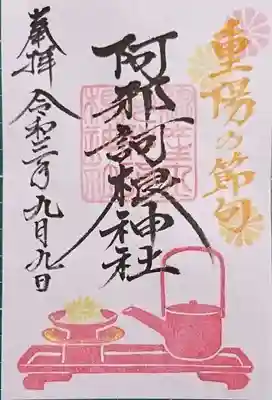 重陽の節句
阿邪訶根神社
奉拝
令和三年九月九日